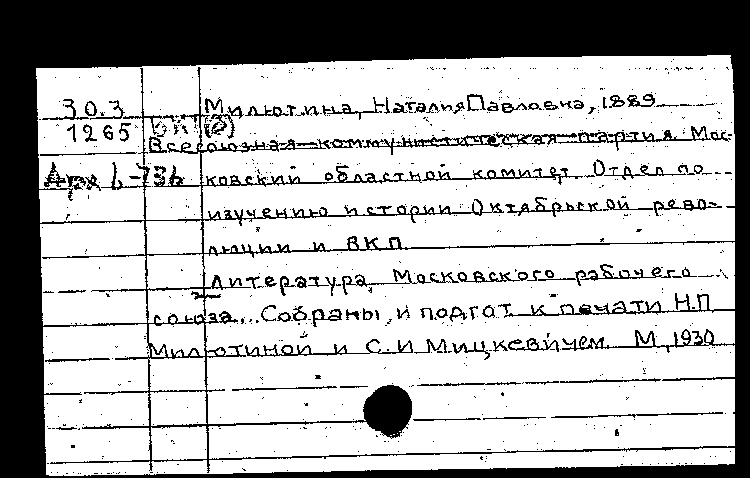 30.3 Милютина, Наталия Павловна, 1889
1265 ВКП(б)
Всесоюзная коммунистическая партия. Мос-
ковский областной комитет. Отдел по
изучению истории Октябрьской рево-
люции и ВКП
Литература Московского рабочего
союза... Собраны и подгот к печати Н.П
Милютиной и С.И Мицкевичем. М, 1930